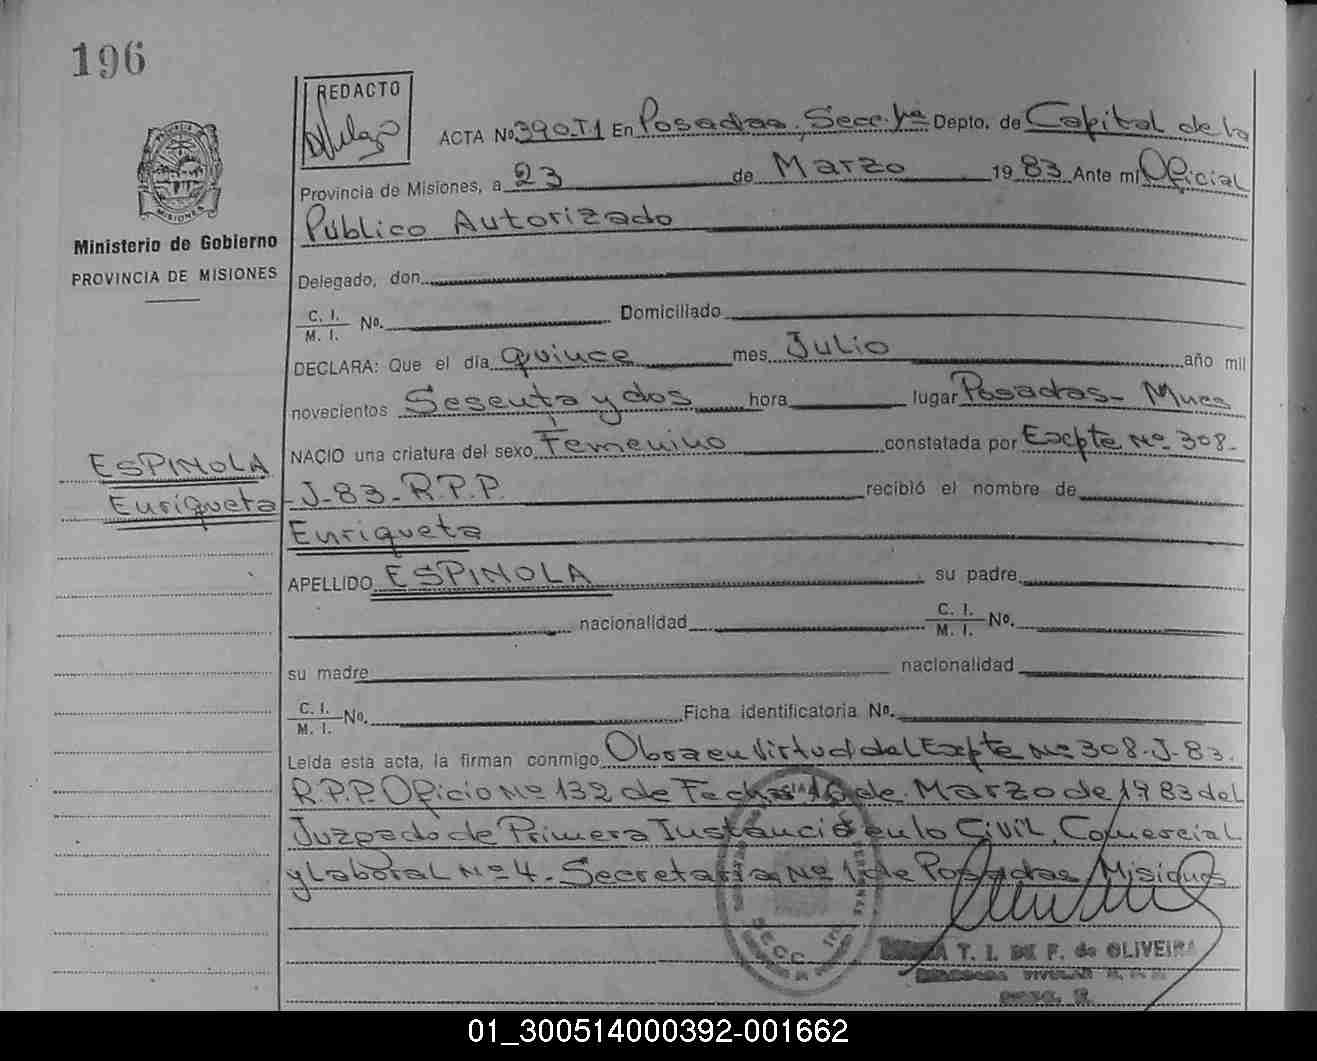 196
REDACTO
ACTA No 390 T1 En Posadas, Secc. 1ra Depto. de Capital de la
Provincia de Misiones, a 23 de Marzo 1983 Ante mi Oficial
Público Autorizado
MISIONES
Ministerio de Gobierno
PROVINCIA DE MISIONES
Delegado, don
C. I.
M. I. No. Domiciliado
DECLARA: Que el día quince mes Julio año mil
novecientos Sesenta y dos hora lugar Posadas - Mnes
NACIO una criatura del sexo Femenino constatada por Excpte Nº 308-
ESPINOLA
Enriqueta
J-83-R.P.P. recibió el nombre de
Enriqueta
APELLIDO ESPINOLA su padre
nacionalidad C. I.
M. I. No.
su madre nacionalidad
C. I.
M. I. No. Ficha identificatoria No.
Leída esta acta, la firman conmigo Obra en Virtud del Excpte Nº 308-J-83.
R.P.P. Oficio Nº 132 de Fecha 16 de Marzo de 1983 del
Juzgado de Primera Instancia en lo Civil, Comercial
y Laboral Nº 4. Secretaría Nº 1 de Posadas Misiones
SECC. 1ra
T. I. DE F. de OLIVEIRA
01_300514000392-001662